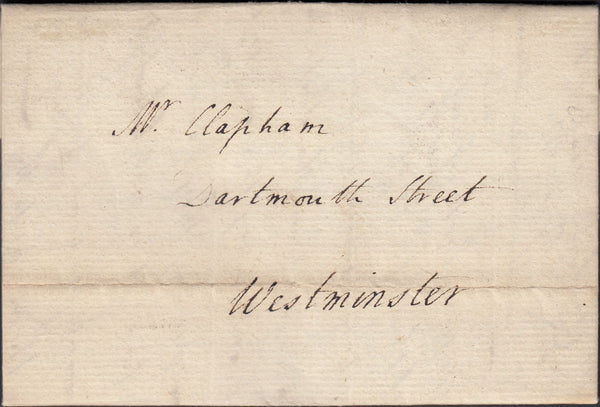 Mr. Clapham
Dartmouth Street
Westminster